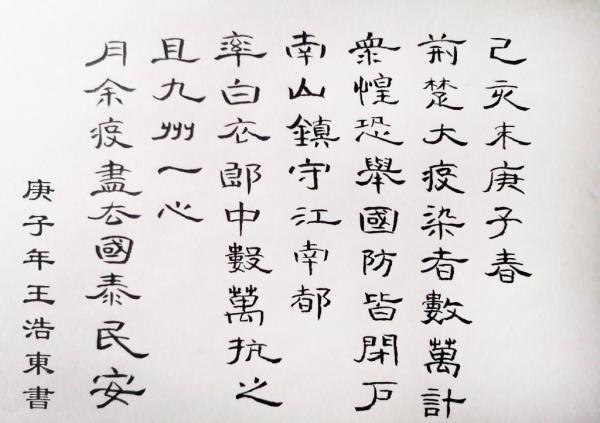 己亥末庚子春
荊楚大疫染者數萬計
衆惶恐舉國防皆閉戸
南山鎮守江南都
率白衣郎中數萬抗之
且九州一心
月余疫盡去國泰民安
庚子年王浩東書